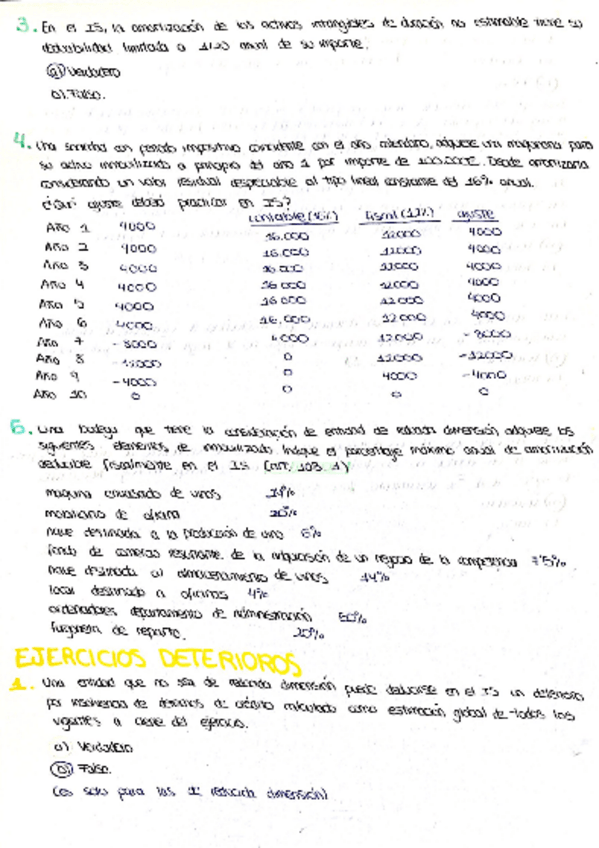 3. En el IS, la amortización de los activos intangibles de duración no estimable tiene su
deducibilidad limitada a 1/20 anual de su importe.
a) Verdadero
b) Falso.
4. Una sociedad con periodo impositivo coincidente con el año calendario, adquiere una maquinaria para
su activo inmovilizado a principio del año 1 por importe de 100.000€. Desde amortizarla
considerando un valor residual despreciable al tipo lineal constante del 16% anual.
¿Qué ajuste deberá practicar en IS?
contable (16%) fiscal (12%) ajuste
Año 1 4000 16.000 12000 4000
Año 2 4000 16.000 12000 4000
Año 3 4000 16000 12000 4000
Año 4 4000 16000 12000 4000
Año 5 4000 16000 12000 4000
Año 6 4000 16.000 12000 4000
Año 7 -8000 4000 12000 -8000
Año 8 -12000 0 12000 -12000
Año 9 -4000 0 4000 -4000
Año 10 0 0 0 0
una bodega que tiene la consideración de entidad de reducida dimensión adquiere los
siguientes elementos de inmovilizado. Indique el porcentaje máximo anual de amortización
deducible fiscalmente en el IS (art. 103.1)
maquina envasado de vinos
mobiliario de oficina 20%
nave destinada a la producción de vino 6%
fondo de comercio resultante de la adquisición de un negocio de la competencia 7'5%
nave destinada al almacenamiento de vinos 14%
local destinado a oficinas 4%
ordenadores departamento de administración 50%
furgoneta de reparto.
EJERCICIOS DETERIOROS
1. Una entidad que no sea de reducida dimensión puede deducirse en el IS un deterioro
por insolvencia de derechos de crédito calculado como estimación global de todos los
vigentes a cierre del ejercicio.
a) Verdadero
b) Falso.
(es solo para las de reducida dimensión)